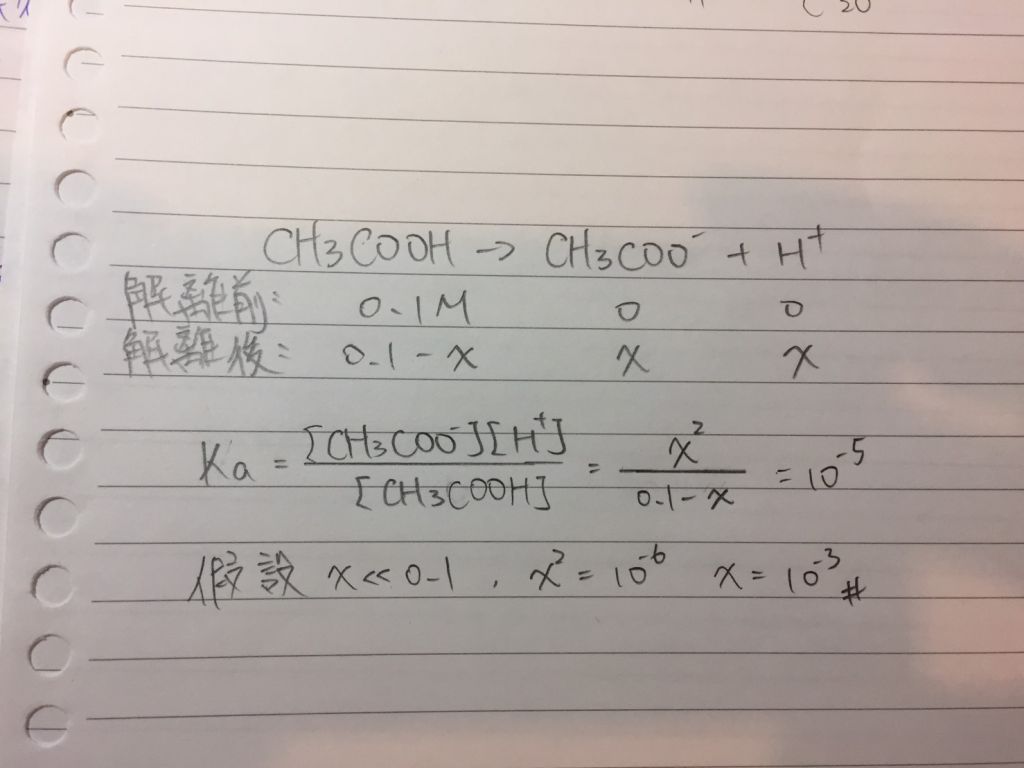 CH3COOH → CH3COO⁻ + H⁺
解離前: 0.1M 0 0
解離後: 0.1-x x x
Ka = [CH3COO⁻][H⁺] / [CH3COOH] = x² / 0.1-x = 10⁻⁵
假設 x << 0.1 , x² = 10⁻⁶ x = 10⁻³ #